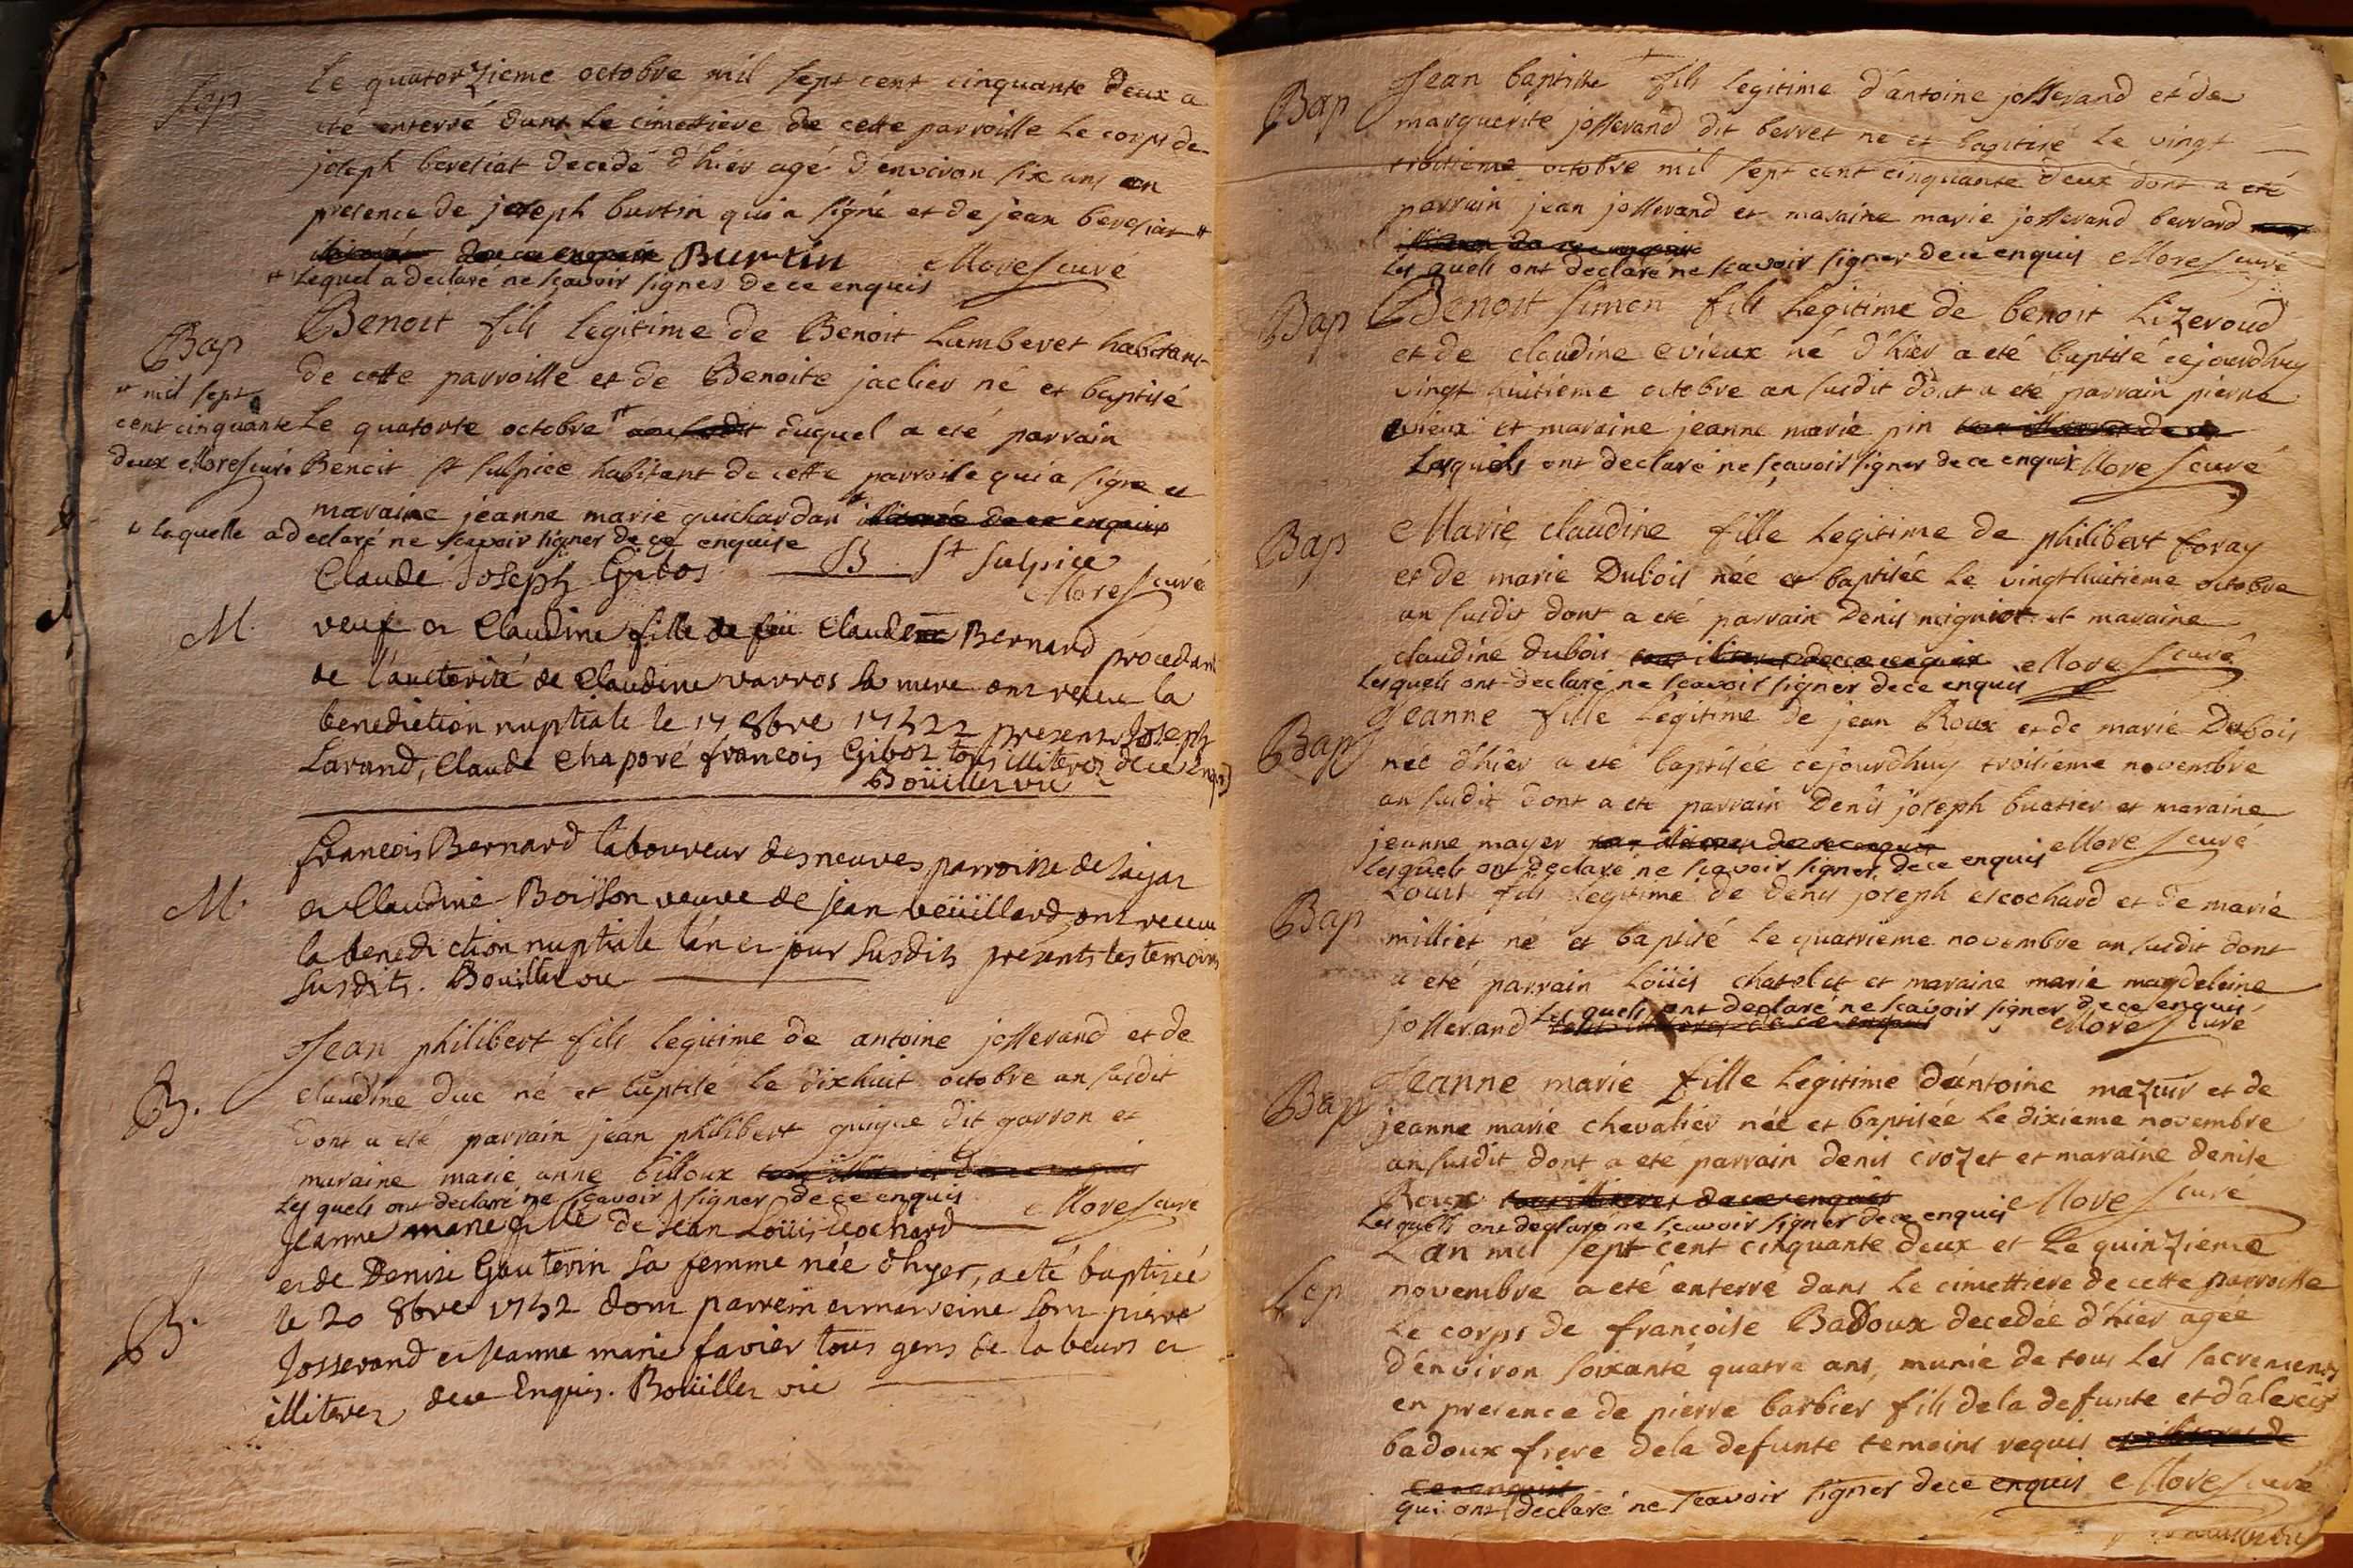 Sep
Le quatorzieme octobre mil sept cent cinquante deux a
eté enterré dans le cimettiere de cette parroisse le corps de
joseph beresiat decedé d'hier agé d'environ six ans en
presence de joseph burtin qui a signé et de jean beresiat
de ce enquis Burtin Mores curé
lequel a declaré ne sçavoir signer de ce enquis
Bap
Benoit fils legitime de Benoit Lamberet habitant
de cette parroisse et de Benoite jaclier né et baptisé
mil sept
cent cinquante
deux Mores curé
Le quatorze octobre an susdit duquel a eté parrain
Benoit st sulpice habitant de cette parroise qui a signe et
maraine jeanne marie guichardan illiterée de ce enquise
laquelle a declaré ne sçavoir signer de ce enquise
B st sulpice
Mores curé
M.
Claude Joseph Gibos
veuf et Claudine fille de feu Claude Bernard procedant
de l'auctorité de Claudine varros sa mere ont receu la
benediction nuptiale le 17 8bre 1752 presents Joseph
Larand, Claude Chaporé françois Gibos tous illiterez de ce enquis
Boüillez vic
M.
françois Bernard laboureur desneuves parroisse de
et Claudine Boisson veuve de jean veüillard ont receu
la benediction nuptiale l'an et jour susdits presents les temoins
susdits. Boüillez vic
B.
Jean philibert fils legitime de antoine josserand et de
claudine duc né et baptisé le dixhuit octobre an susdit
dont a eté parrain jean philibert guigue dit garron et
maraine marie anne billoux tous illiterez de ce enquis
Lesquels ont declaré ne sçavoir signer de ce enquis Mores curé
B.
Jeanne marie fille de Jean Loüis Cochard
et de Denise Gauterin sa femme née d'hyer, a eté baptisée
le 20 8bre 1752 dont parrein et marreine sont pierre
Josserand et jeanne marie favier tous gens de labeurs et
illiterez de ce enquis. Boüillez vic
Bap
Jean baptiste fils legitime d'antoine josserand et de
marguerite josserand dit berret né et baptisé le vingt
troisieme octobre mil sept cent cinquante deux dont a eté
parrain jean josserand et maraine marie josserand berrard
Lesquels ont declaré ne sçavoir signer de ce enquis Mores curé
Bap
Benoit simon fils legitime de benoit Lizeroud
et de claudine evieux né d'hier a eté baptisé cejourdhuy
vingt huitieme octobre an susdit dont a eté parrain pierre
evieux et maraine jeanne marie pin
Lesquels ont declaré ne sçavoir signer de ce enquis Mores curé
Bap
Marie claudine fille legitime de philibert foray
et de marie Dubois née et baptisée le vingthuitieme octobre
an susdit dont a eté parrain Denis migniot et maraine
claudine dubois tous illiterez de ce enquis Mores curé
Lesquels ont declaré ne sçavoir signer de ce enquis
Bap
Jeanne fille legitime de jean Roux et de marie Dubois
née d'hier a eté baptisée cejourdhuy troisieme novembre
an susdit dont a eté parrain Denis joseph buatier et maraine
jeanne mayer tous illiterez de ce enquis Mores curé
Lesquels ont declaré ne sçavoir signer de ce enquis
Bap
Louis fils legitime de denis joseph escochard et de marie
milliet né et baptisé le quatrieme novembre an susdit dont
a eté parrain Loüis chatelet et maraine marie magdeleine
Lesquels ont declaré ne sçavoir signer de ce enquis
josserand tous illiterez de ce enquis Mores curé
Bap
Jeanne marie fille legitime d'antoine mazuir et de
jeanne marie chevalier née et baptisée le dixieme novembre
an susdit dont a eté parrain denis crozet et maraine denise
Roux tous illiterez de ce enquis Mores curé
Lesquels ont declaré ne sçavoir signer de ce enquis
Sep
L'an mil sept cent cinquante deux et le quinzieme
novembre a eté enterré dans le cimettiere de cette parroisse
le corps de françoise Badoux decedée d'hier agée
d'environ soixante quatre ans, munie de tous les sacrements
en presence de pierre barbier fils de la defunte et d'alexis
badoux frere de la defunte temoins requis et illiterez de
ce enquis
qui ont declaré ne sçavoir signer de ce enquis Mores curé